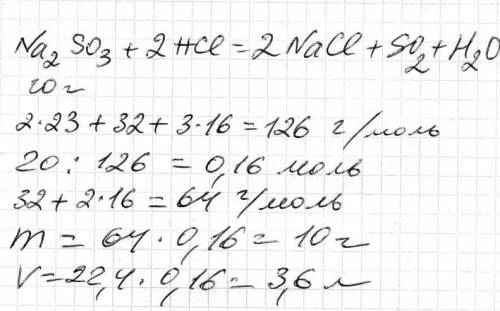 Na₂SO₃ + 2HCl = 2NaCl + SO₂ + H₂O
20 г
2·23 + 32 + 3·16 = 126 г/моль
20 : 126 = 0,16 моль
32 + 2·16 = 64 г/моль
m = 64 · 0,16 = 10 г
V = 22,4 · 0,16 = 3,6 л